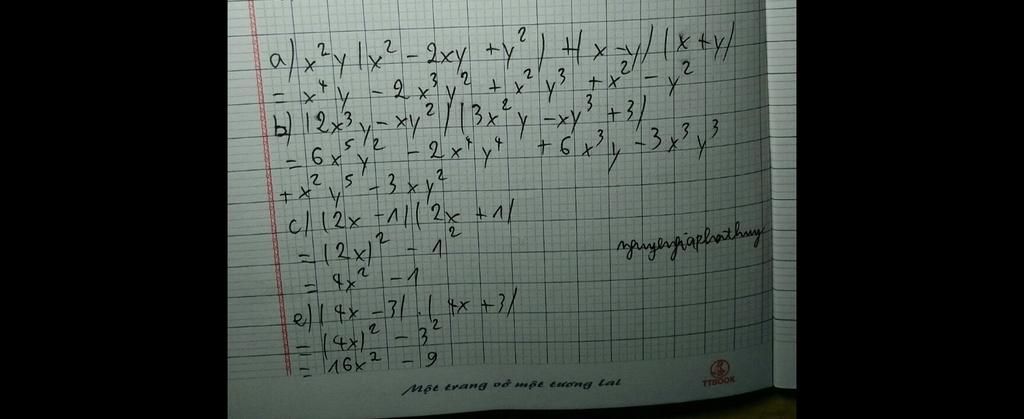 a) x²y (x² - 2xy + y²) + (x - y) (x + y)
= x⁴y - 2x³y² + x²y³ + x² - y²
b) (2x³y - xy²) (3x²y - xy³ + 3)
= 6x⁵y² - 2x⁴y⁴ + 6x³y - 3x³y³
+ x²y⁵ - 3xy²
c) (2x - 1) (2x + 1)
= (2x)² - 1²
= 4x² - 1
e) (4x - 3) . (4x + 3)
= (4x)² - 3²
= 16x² - 9
Một trang vở một tương lai
TTBOOK